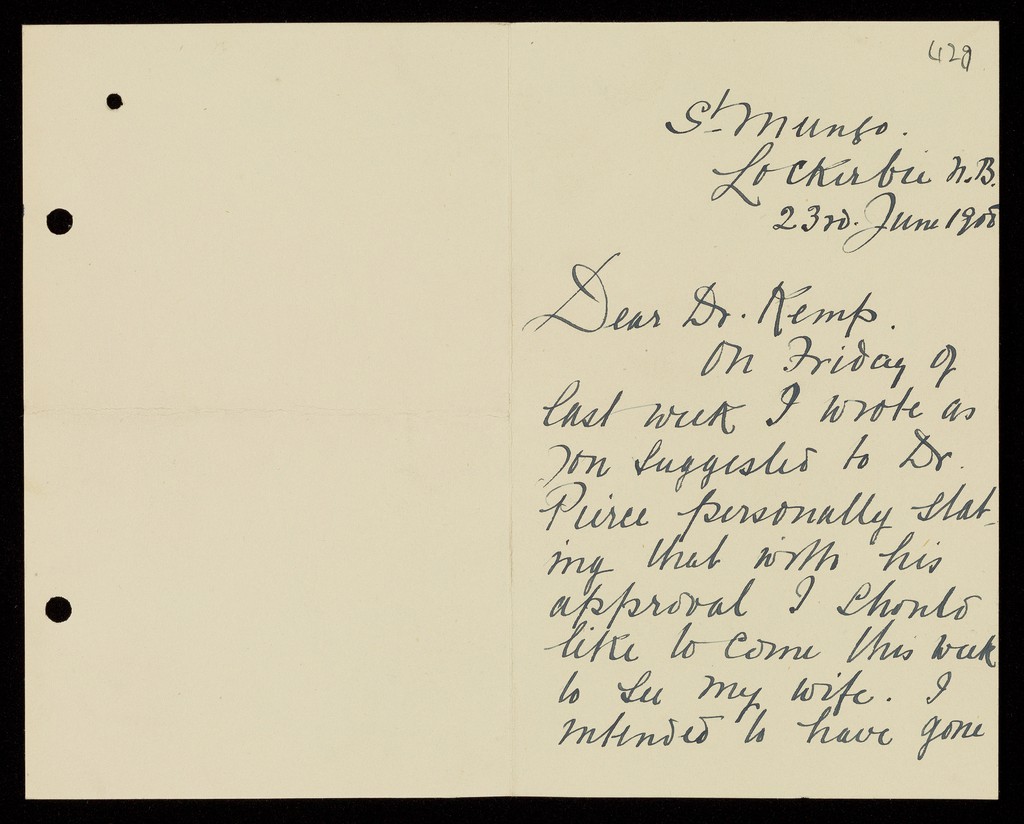 429
St Mungo.
Lockerbie N.B.
23rd. June 1908
Dear Dr. Kemp.
On Friday of
last week I wrote as
you suggested to Dr.
Pierce personally stat-
ing that with his
approval I should
like to come this week
to see my wife. I
intended to have gone